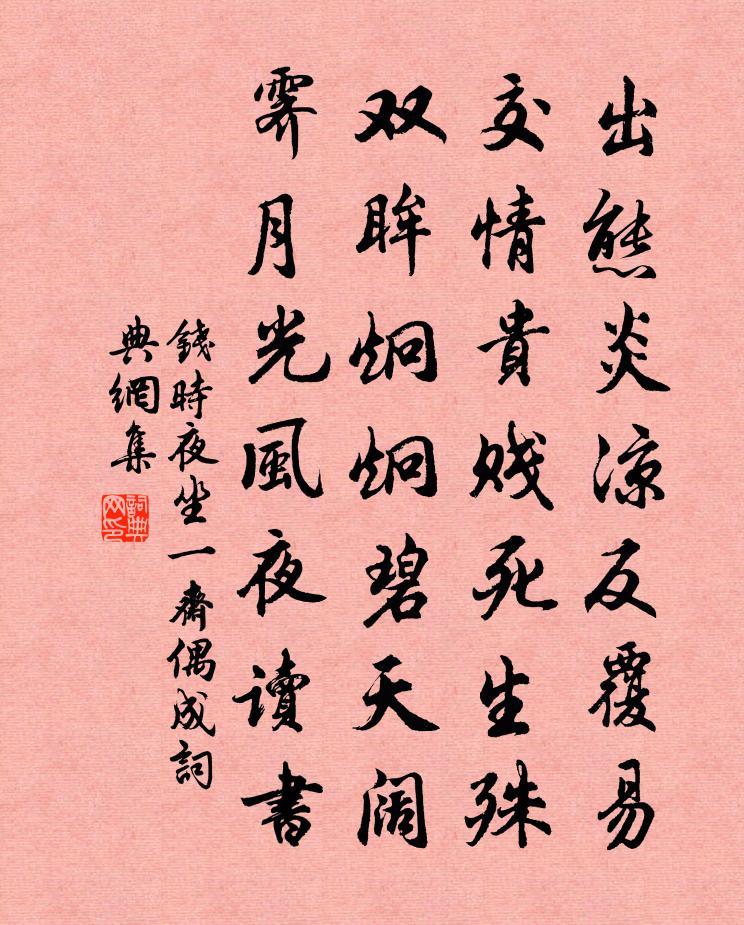 出熊炎涼反覆易
交情貴贱死生殊
双眸炯炯碧天阔
霁月光風夜讀書
錢時夜坐一齋偶成詞
典網集
詞典
网印